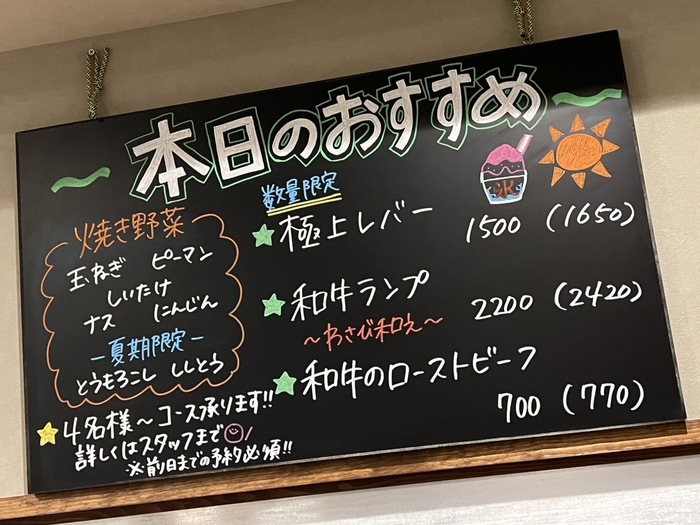 本日のおすすめ
焼き野菜
玉ねぎ ピーマン
しいたけ
ナス にんじん
-夏期限定-
とうもろこし ししとう
4名様～コース承ります!!
詳しくはスタッフまで
※前日までの予約必須!!
数量限定
極上レバー 1500 (1650)
和牛ランプ 2200 (2420)
～わさび和え～
和牛のローストビーフ
700 (770)